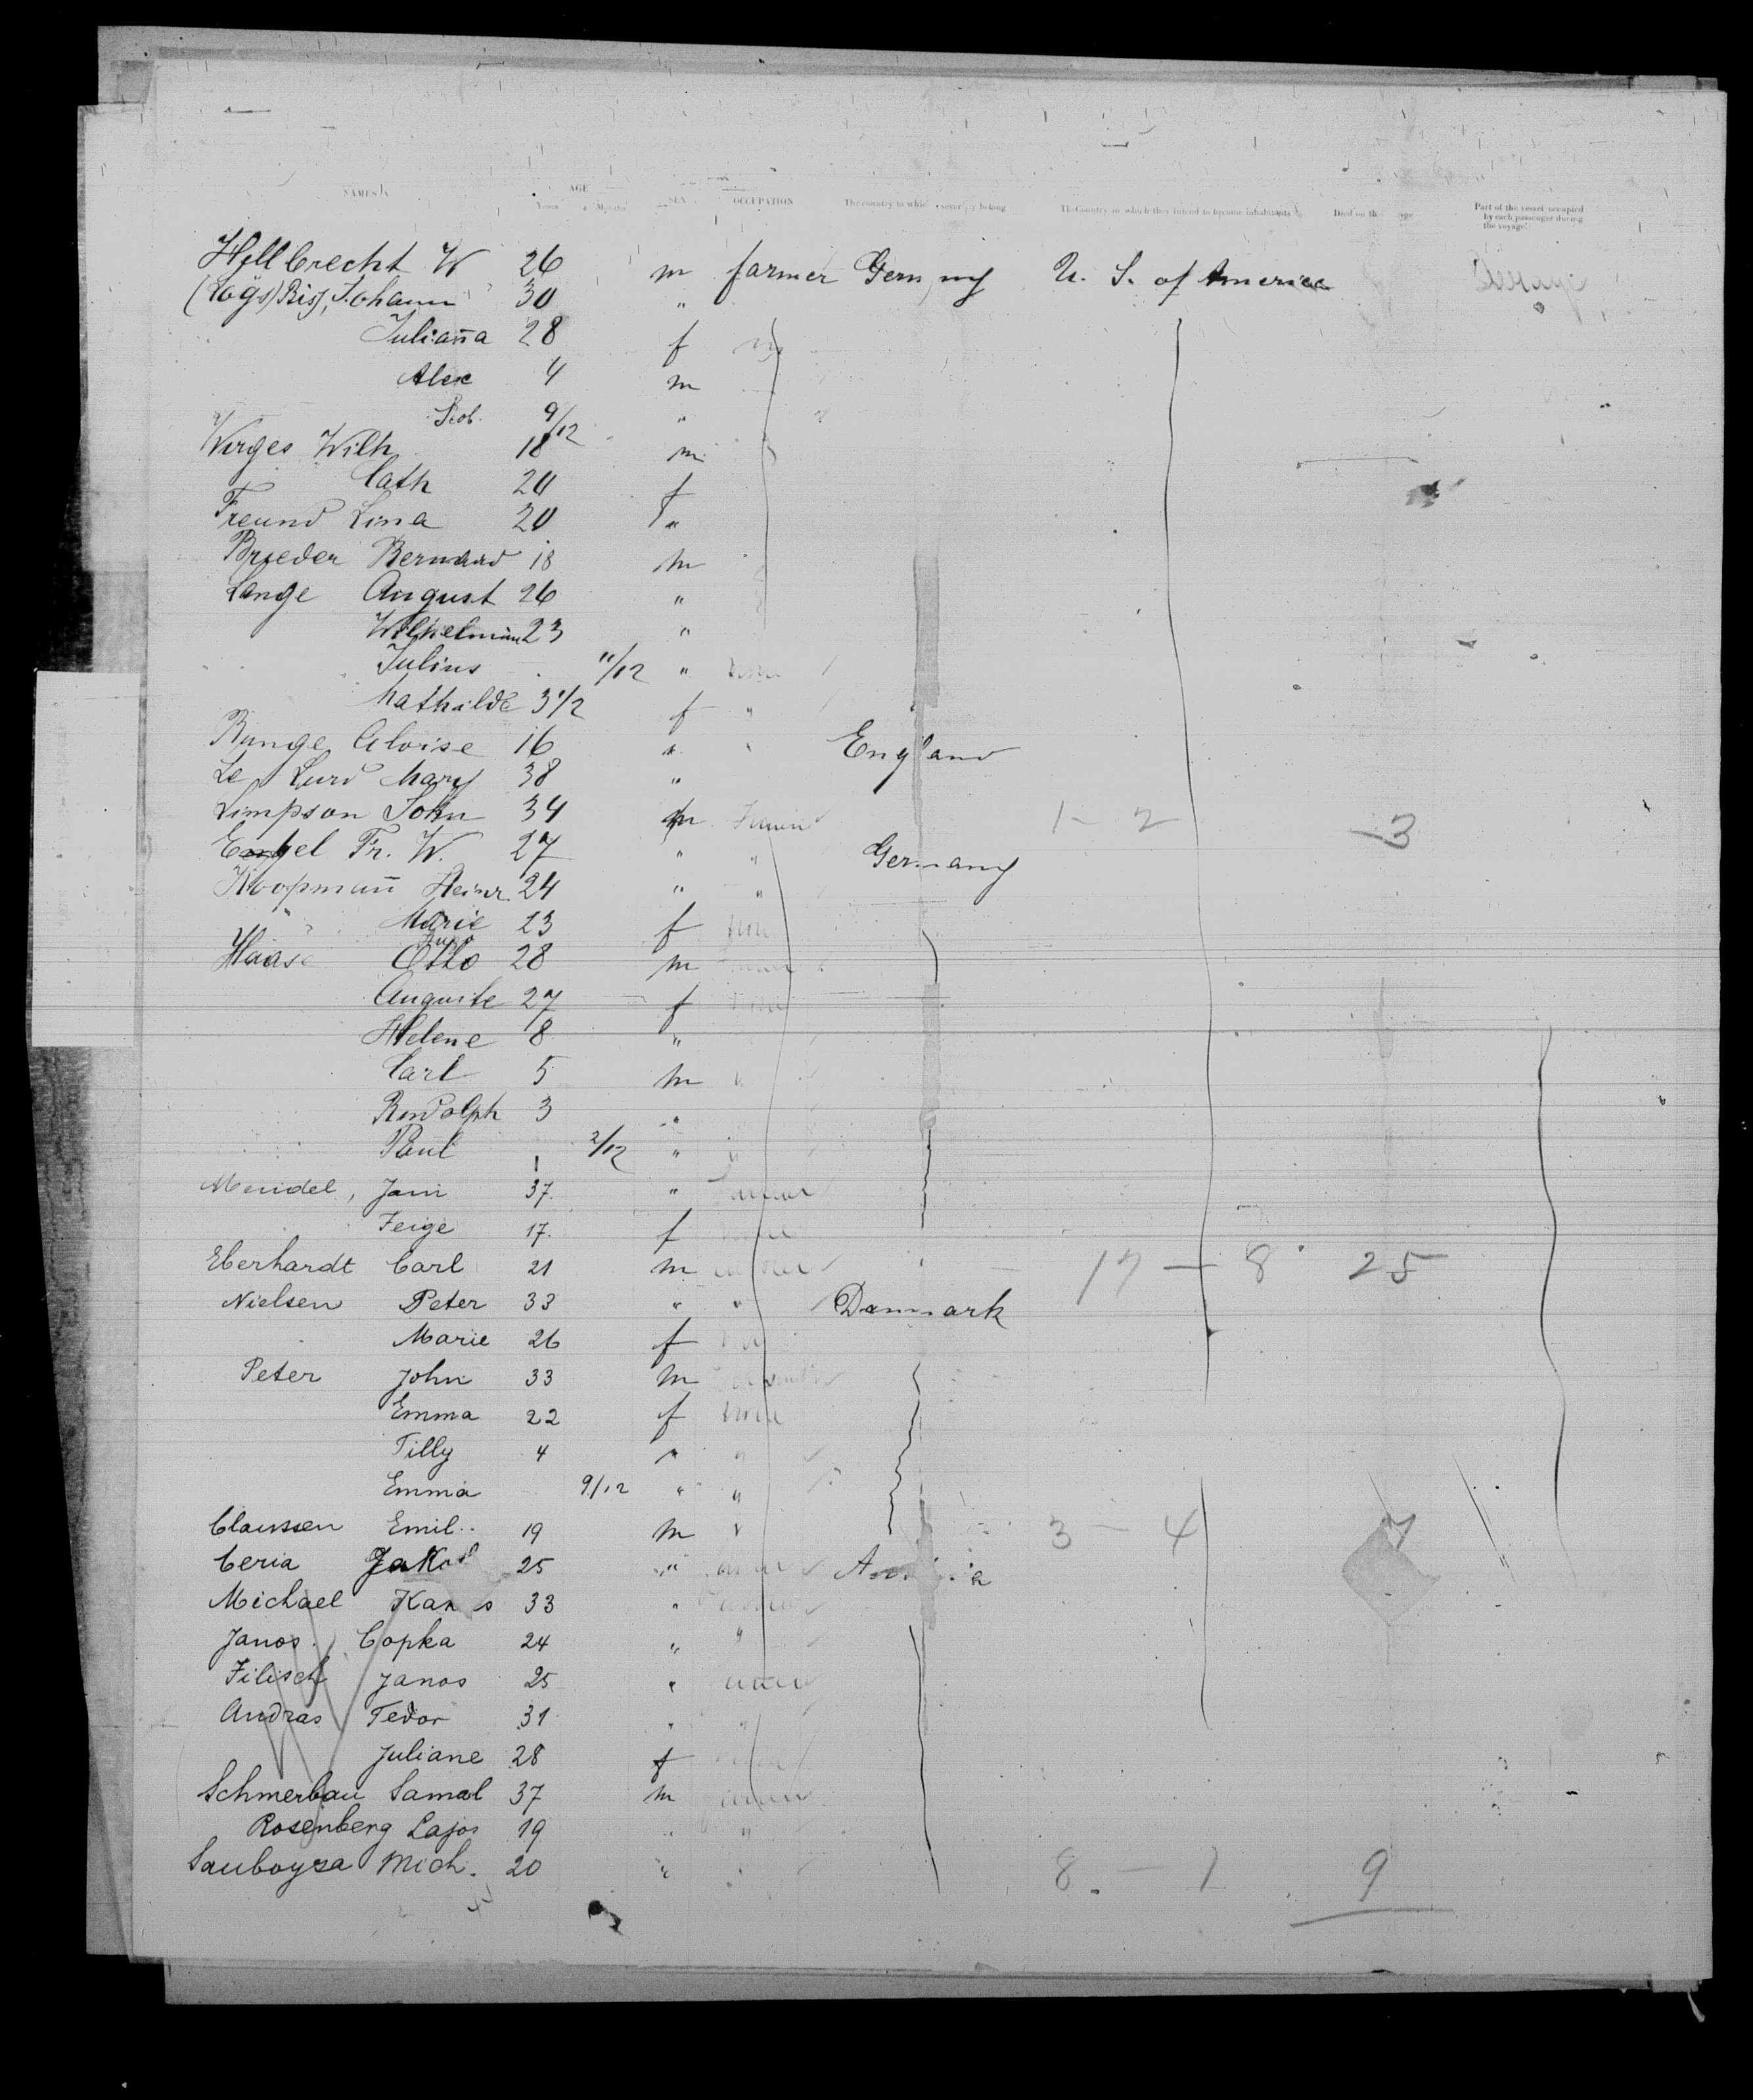 NAMES AGE Years Months SEX OCCUPATION The country to which they intend to become inhabitants Died on the voyage Part of the vessel occupied by each passenger during the voyage
Hillbrecht W 26 m farmer Germany U. S. of America
Johann 30 "
Julianna 28 f
Alex 4 m
9/12 "
Wirges Wilh 18 m
Cath 20 f
Freund Lina 20 "
Brieder Bernard 18 m
Lange August 26 "
Wilhelmine 23 "
Julius 11/12 "
Mathilde 3 1/2 f "
Runge Aloise 16 " England
Le Lurd Mary 38 "
Simpson John 34 m 1 - 2 - 3
Engel Fr. W. 27 " " Germany
Koopmann Heinr. 24 " "
Marie 23 f
Haase Otto 28 m
Auguste 27 f
Helene 8 "
Carl 5 m
Rudolph 3 "
Paul 2/12 "
Mendel, Jani 37 " Farmer
Feige 17 f
Eberhardt Carl 21 m 17 - 8 25
Nielsen Peter 33 " " Danmark
Marie 26 f
Peter John 33 m
Emma 22 f none
Tilly 4 " "
Emma 9/12 " "
Claussen Emil 19 m " 3 - 4 7
Ceria Jakob 25 "
Michael 33 "
Janos Copka 24 " "
Filisch Janos 25 "
Andras Fedor 31 "
Juliane 28 f
Schmerbau Samal 37 m
Rosenberg Lajos 19 " "
Mich. 20 " 8 - 1 9